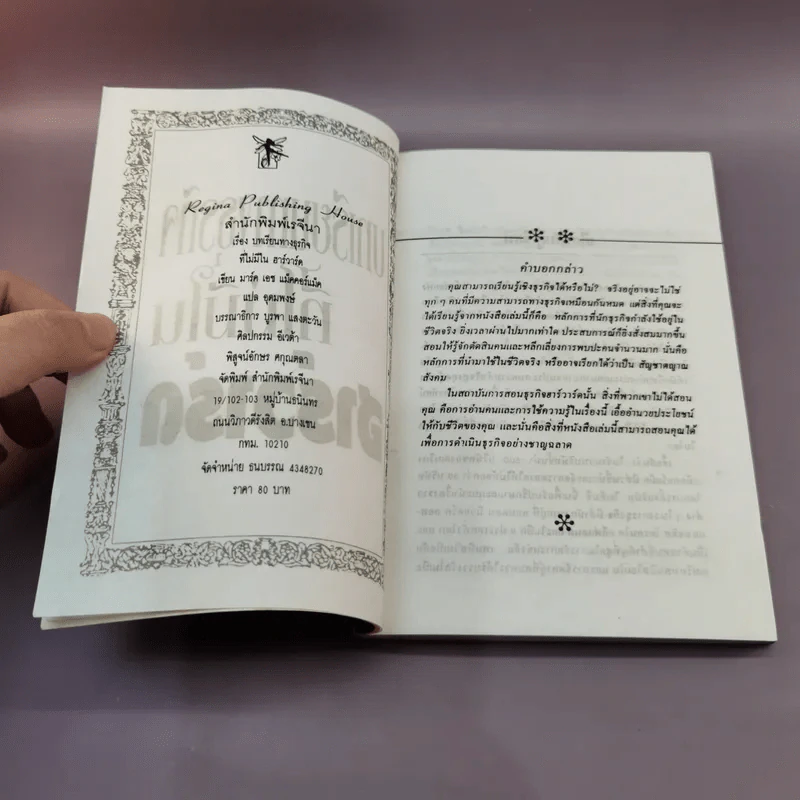 Regina Publishing House
สำนักพิมพ์เรจีนา
เรื่อง บทเรียนทางธุรกิจ
ที่ไม่มีใน ฮาร์วาร์ด
เขียน มาร์ค เอช แม็คคอร์แม็ค
แปล อุดมพงษ์
บรรณาธิการ บูรพา แสงตะวัน
ศิลปกรรม ชีเวต้า
พิสูจน์อักษร ศกุณตลา
จัดพิมพ์ สำนักพิมพ์เรจีนา
19/102-103 หมู่บ้านธนินทร
ถนนวิภาวดีรังสิต อ.บางเขน
กทม. 10210
จัดจำหน่าย ธนบรรณ 4348270
ราคา 80 บาท
คำบอกกล่าว
คุณสามารถเรียนรู้เชิงธุรกิจได้หรือไม่? จริงอยู่อาจจะไม่ใช่
ทุก ๆ คนที่มีความสามารถทางธุรกิจเหมือนกันหมด แต่สิ่งที่คุณจะ
ได้เรียนรู้จากหนังสือเล่มนี้ก็คือ หลักการที่นักธุรกิจกำลังใช้อยู่ใน
ชีวิตจริง ยิ่งเวลาผ่านไปมากเท่าใด ประสบการณ์ก็ยิ่งสั่งสมมากขึ้น
สอนให้รู้จักตัดสินคนและหลีกเลี่ยงการพบปะคนจำนวนมาก นั่นคือ
หลักการที่นำมาใช้ในชีวิตจริง หรืออาจเรียกได้ว่าเป็น สัญชาตญาณ
สังคม
ในสถาบันการสอนธุรกิจฮาร์วาร์ดนั้น สิ่งที่พวกเขาไม่ได้สอน
คุณ คือการอ่านคนและการใช้ความรู้ในเรื่องนี้ เอื้ออำนวยประโยชน์
ให้กับชีวิตของคุณ และนั่นคือสิ่งที่หนังสือเล่มนี้สามารถสอนคุณได้
เพื่อการดำเนินธุรกิจอย่างชาญฉลาด